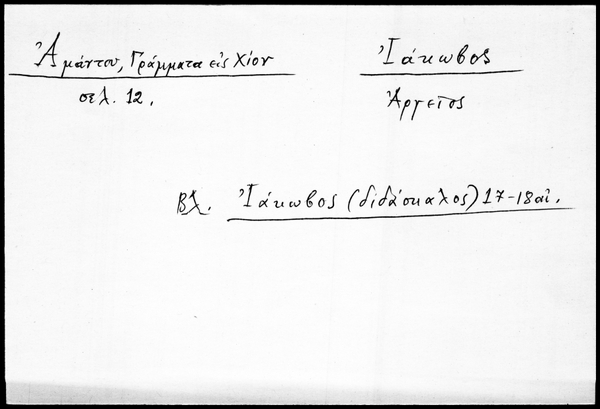 Ἀμάντου, Γράμματα εἰς Χίον
σελ. 12.
Ἰάκωβος
Ἀργεῖος
Βλ. Ἰάκωβος (διδάσκαλος) 17-18 αἰ.